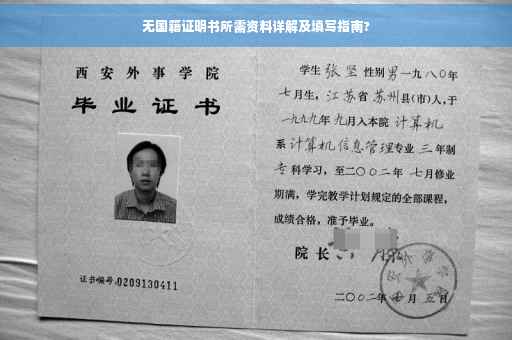 无国籍证明书所需资料详解及填写指南?
西安外事学院
毕业证书
证书编号:0209130411
学生 张坚 性别 男 一九八〇年
七月生,江苏省 苏州 县(市)人,于
一九九九年 九月入本院 计算机
系 计算机信息管理 专业 三 年制
专 科学习,至二〇〇二年 七月修业
期满,学完教学计划规定的全部课程,
成绩合格,准予毕业。
院长
二〇〇二年 七 月 五 日